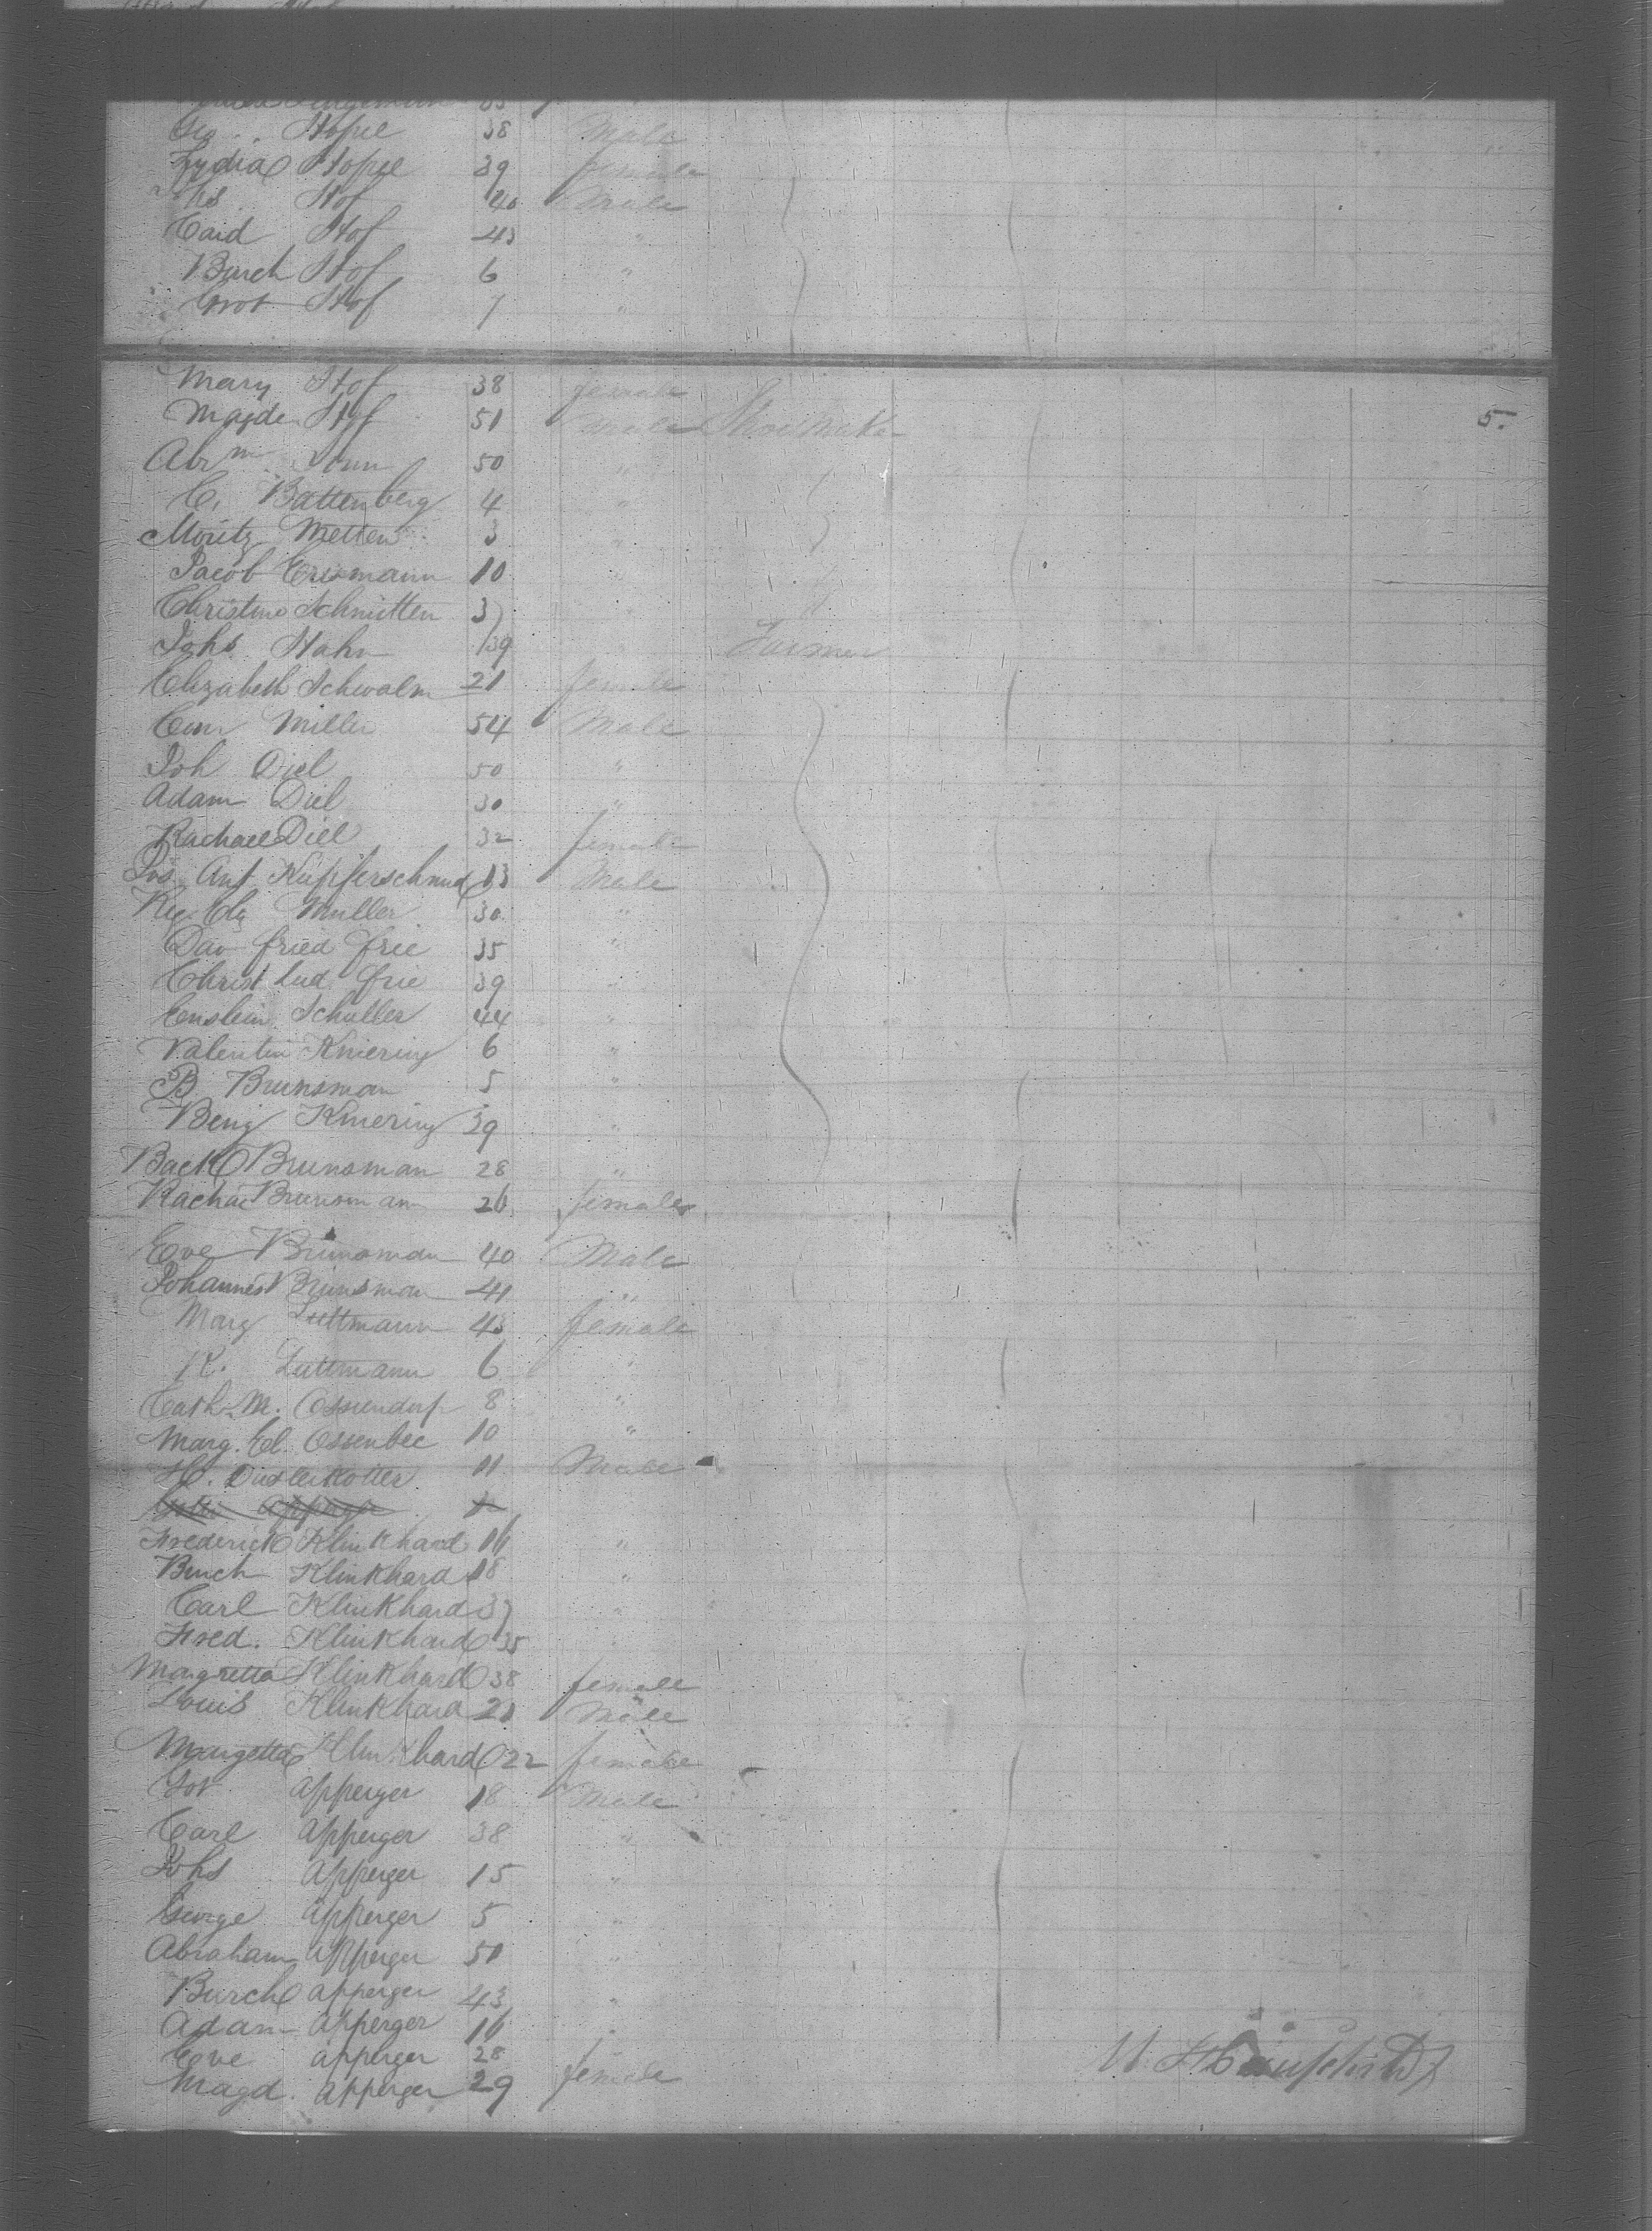 Geo. Hopel 38 Male
Lydia Hopel 39 female
Hof 40 Male
Card Hof 43 "
Burch Hof 6 "
Grot Hof 1 "
Mary Hof 38 female
Magde Hof 51 male Shoemaker 5.
Abrm 50 "
C. Battenberg 4 "
Moritz Metten 3 "
Jacob Erismann 10 "
Christine Schmitten 37 "
Johs Hahn 39 " Farmer
Elizabeth Schwalm 21 female
Conr Miller 54 Male
Joh Diel 50 "
Adam Diel 30 "
Rachael Diel 32 female
Jos Ant Kupferschmid 13 Male
Müller 30 "
Dav fried frie 35 "
Christ Lud frie 39 "
Enslein Schuller 44 "
Valentin Kniering 6 "
B Brunsman 5 "
Benj Kniering 39 "
Back Brunsman 28 "
Rachae Brunsman 26 female
Eve Brunsman 40 Male
Johannes Brunsman 41 "
Marg Luttmann 43 female
K. Luttmann 6 "
Cath. M. Ossendorf 8 "
Marg. El. Ossenbec 10 "
H. Diesterkotter 11 Male
Apperger
Frederick Klinkhard 16 "
Burch Klinkhard 18 "
Carl Klinkhard 37 "
Fred. Klinkhard 35
Margretta Klinkhard 38 female
Louis Klinkhard 21 Male
Margetta Klinkhard 22 female
Apperger 18 Male
Carl Apperger 38 "
Johs Apperger 15 "
George Apperger 5 "
Abraham Apperger 51 "
Burch Apperger 43 "
Adam Apperger 16 "
Eve Apperger 28
Magd. Apperger 29 female